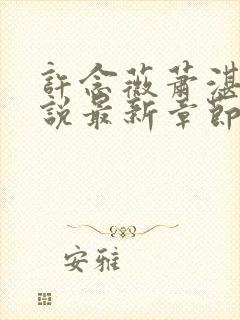 許念薇蕭湛
說最新章節
安雅